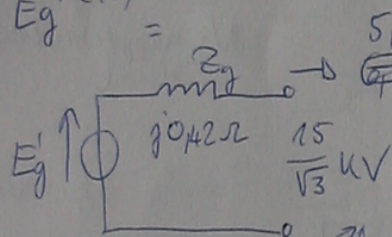 Eg
=
Zg
E'g j0,42Ω 15/√3 kV